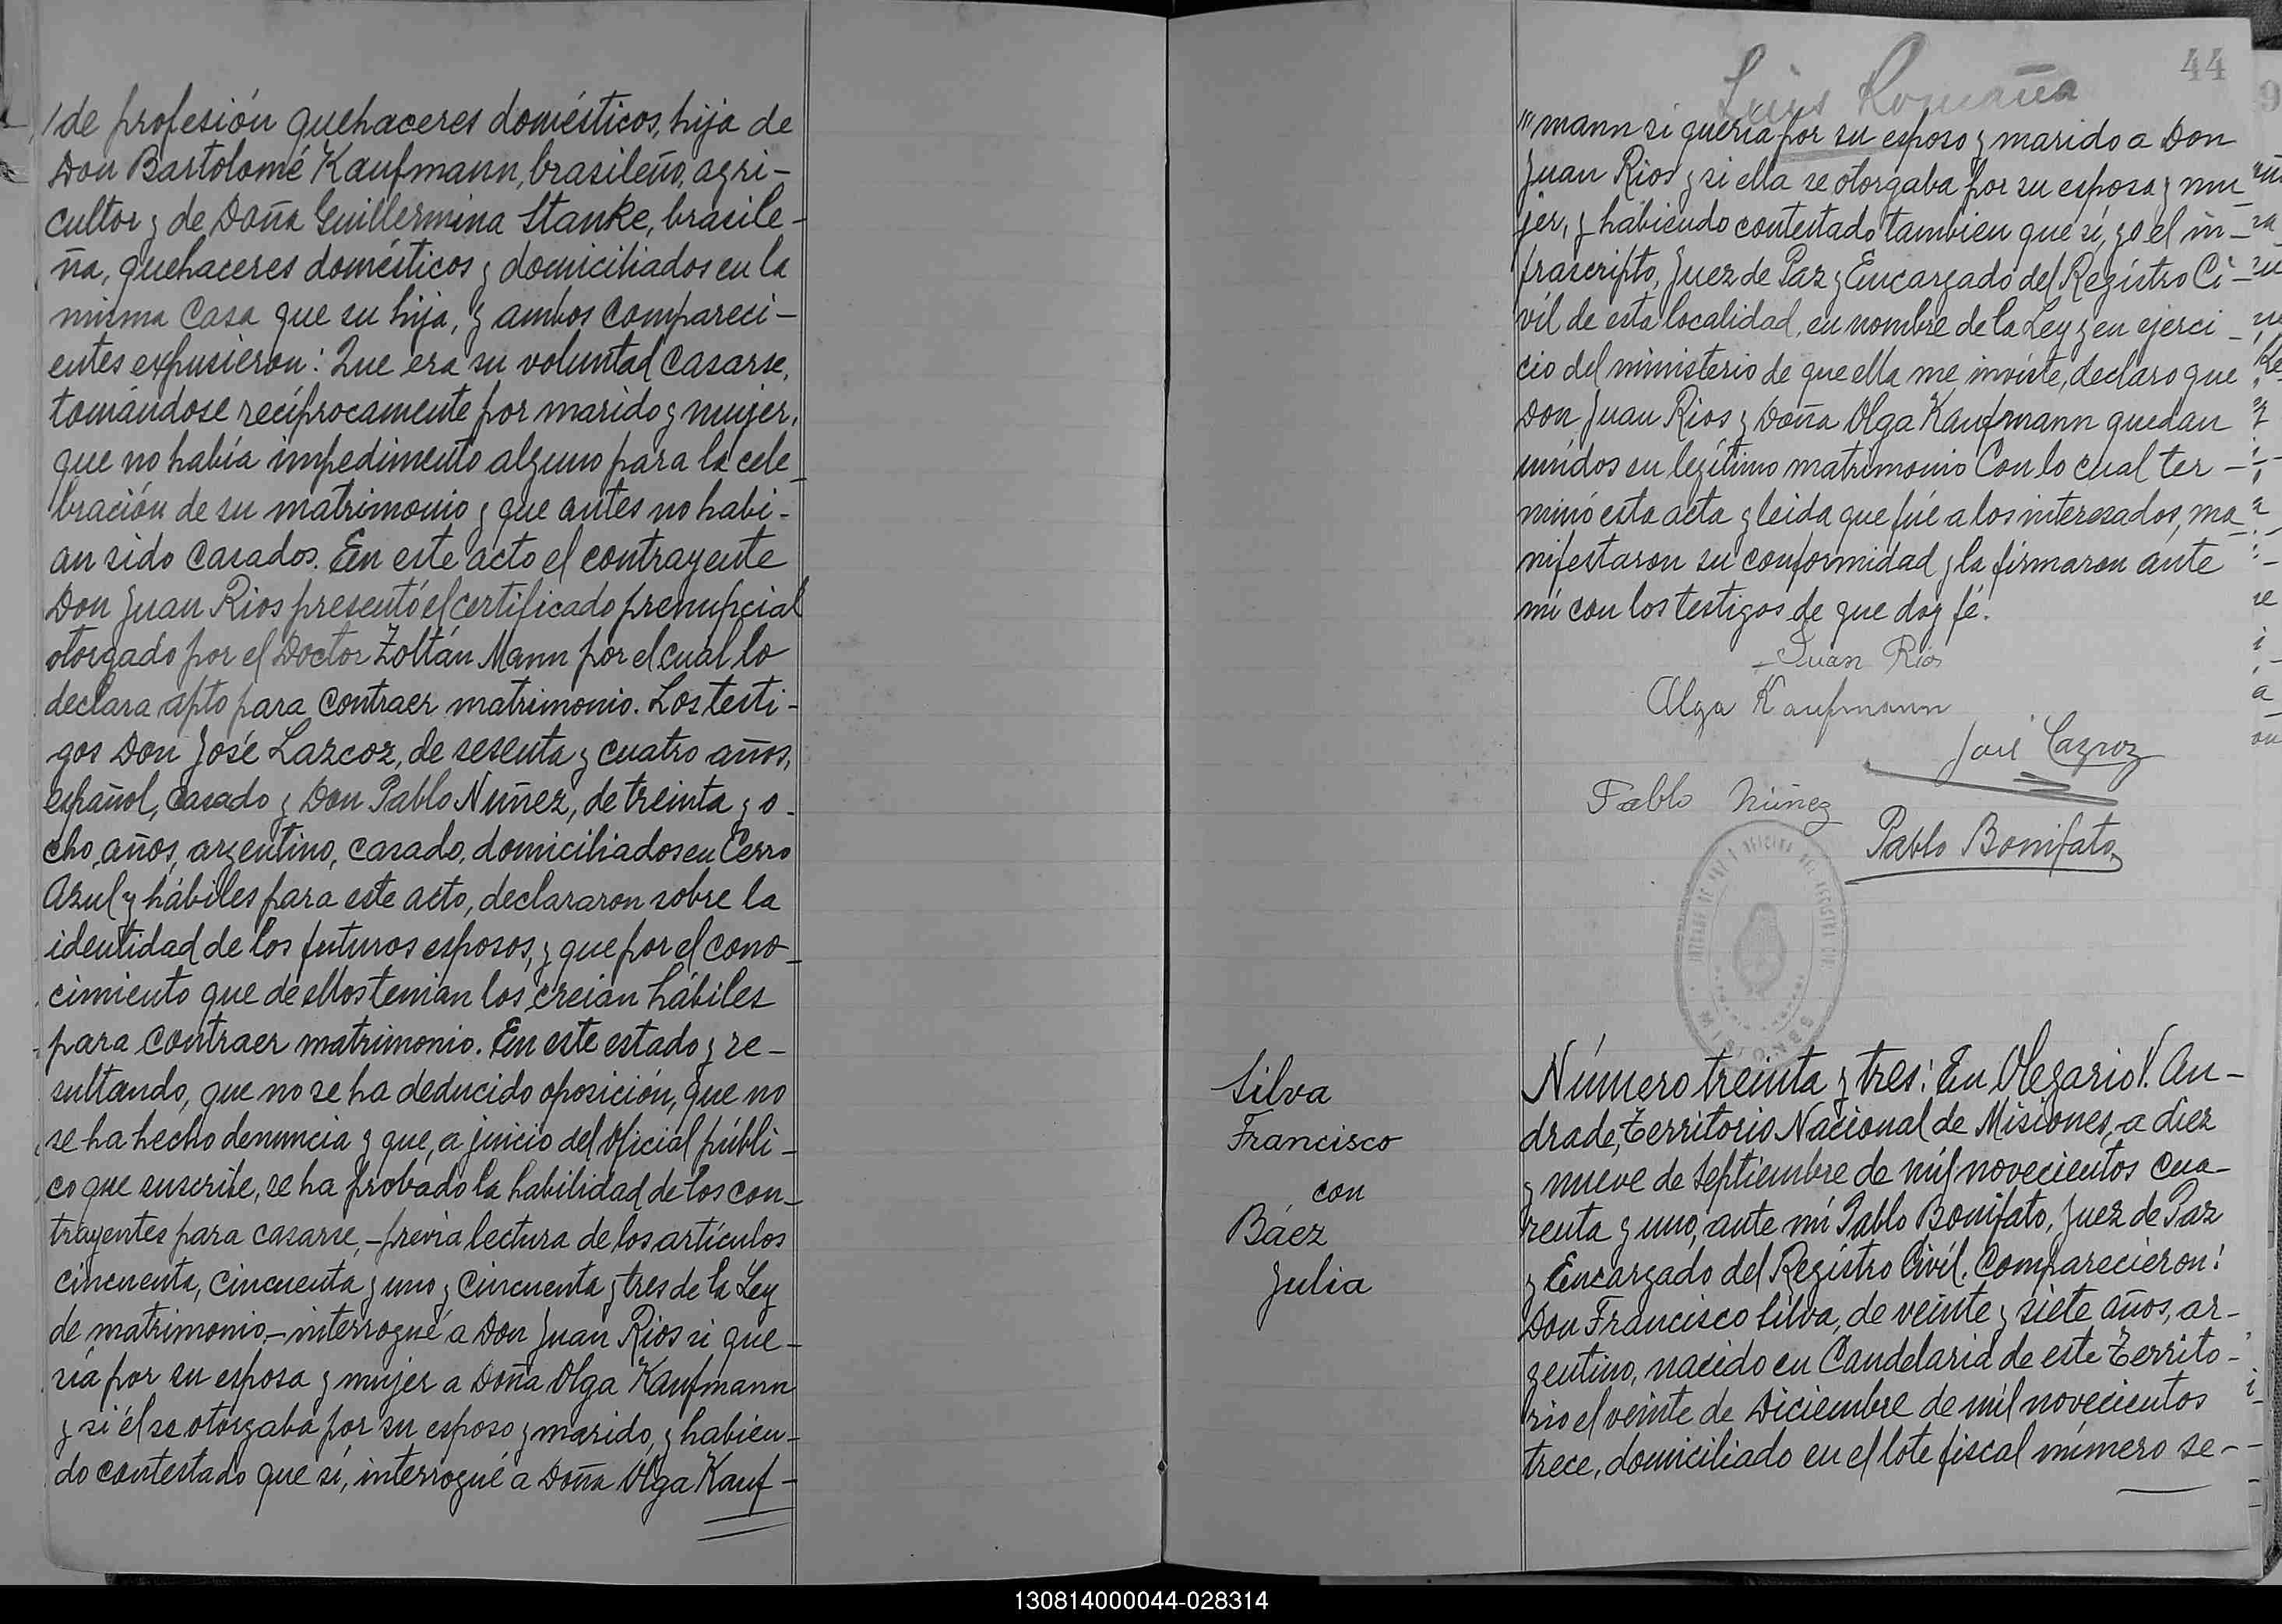 /de profesión quehaceres domésticos, hija de
Don Bartolomé Kaufmann, brasileño, agri-
cultor y de Doña Guillermina Stanke, brasile-
ña, quehaceres domésticos y domiciliados en la
misma casa que su hija, y ambos compareci-
entes expusieron: Que era su voluntad casarse,
tomándose recíprocamente por marido y mujer,
que no había impedimento alguno para la cele_
bración de su matrimonio y que antes no habi-
an sido casados. En este acto el contrayente
Don Juan Rios presentó el certificado prenupcial
otorgado por el Doctor Zoltán Mann por el cual lo
declara apto para contraer matrimonio. Los testi-
gos Don José Lazcoz, de sesenta y cuatro años,
español, casado y Don Pablo Nuñez, de treinta y o-
cho, años, argentino, casado, domiciliados en Cerro
Azul y hábiles para este acto, declararon sobre la
identidad de los futuros esposos, y que por el cono_
cimiento que de ellos tenian los creian hábiles
para contraer matrimonio. En este estado y re-
sultando, que no se ha deducido oposición, que no
se ha hecho denuncia y que, a juicio del Oficial públi_
co que suscribe, se ha probado la habilidad de los con_
trayentes para casarse, -previa lectura de los artículos
cincuenta, cincuenta y uno y cincuenta y tres de la Ley
de matrimonio,- interrogué a Don Juan Rios si que-
ría por su esposa y mujer a Doña Olga Kaufmann
y si él se otorgaba por su esposo y marido, y habien-
do contestado que sí, interrogué a Doña Olga Kauf-
44
Luis Romaña
"'mann si quería por su esposo y marido a Don
Juan Rios y si ella se otorgaba por su esposa y mu_
jer, y habiendo contestado tambien que sí, yo el in_
frascripto, Juez de Paz y Encargado del Registro Ci-
vil de esta localidad, en nombre de la Ley y en ejerci_
cio del ministerio de que ella me inviste, declaro que
Don Juan Rios y Doña Olga Kaufmann quedan
unidos en legítimo matrimonio Con lo cual ter-
minó esta acta y leida que fué a los interesados, ma_
nifestaron su conformidad y la firmaron ante
mí con los testigos de que doy fé.
Juan Rios
Olga Kaufmann
José Lazcoz
Pablo Núñez
Pablo Bonifato
Silva
Francisco
con
Báez
Julia
Número treinta y tres: En Olegario V. An-
drade, Territorio Nacional de Misiones, a diez
y nueve de Septiembre de mil novecientos cua-
renta y uno, ante mí Pablo Bonifato, Juez de Paz
y Encargado del Registro Civil. Comparecieron:
Don Francisco Silva, de veinte y siete años, ar-
gentino, nacido en Candelaria de este Territo-
rio el veinte de Diciembre de mil novecientos
trece, domiciliado en el lote fiscal número se-
130814000044-028314